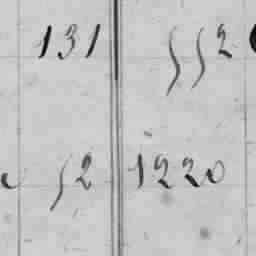 131 552
52 1220